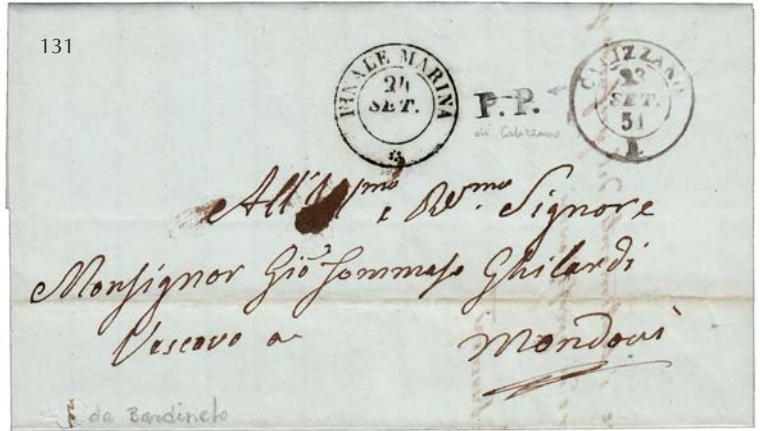 131
FINALE MARINA
24
SET.
P. P.
di Calizzano
CALIZZANO
23
SET.
51
All' Ill.mo e Rev.mo Signore
Monsignor Gio Tommaso Ghilardi
Vescovo a Mondovì
da Bardineto